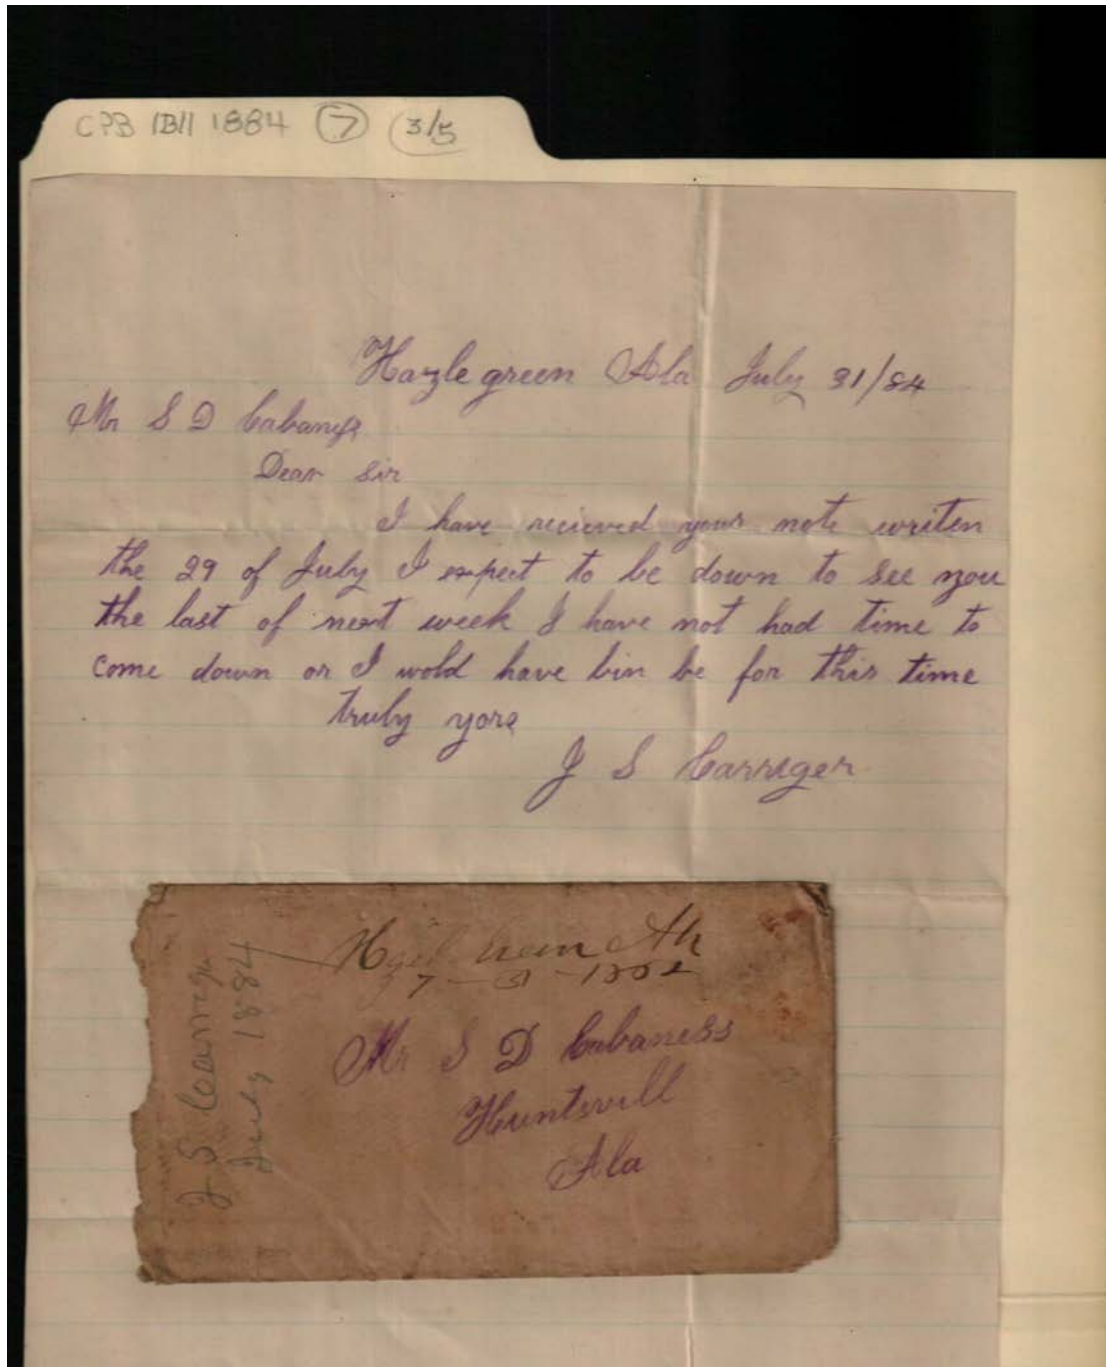 CPB IB11 1884 7 3/5
Hazle green Ala July 31/84
Mr S D Cabaness
Dear Sir
I have recieved your note writen
the 29 of July I expect to be down to see you
the last of next week I have not had time to
come down or I wold have bin be for this time
truly yors
J S Carriger
Ala
7 - 31 - 188
Mr S D Cabaness
Huntsvill
Ala
J S Carriger
July 1884